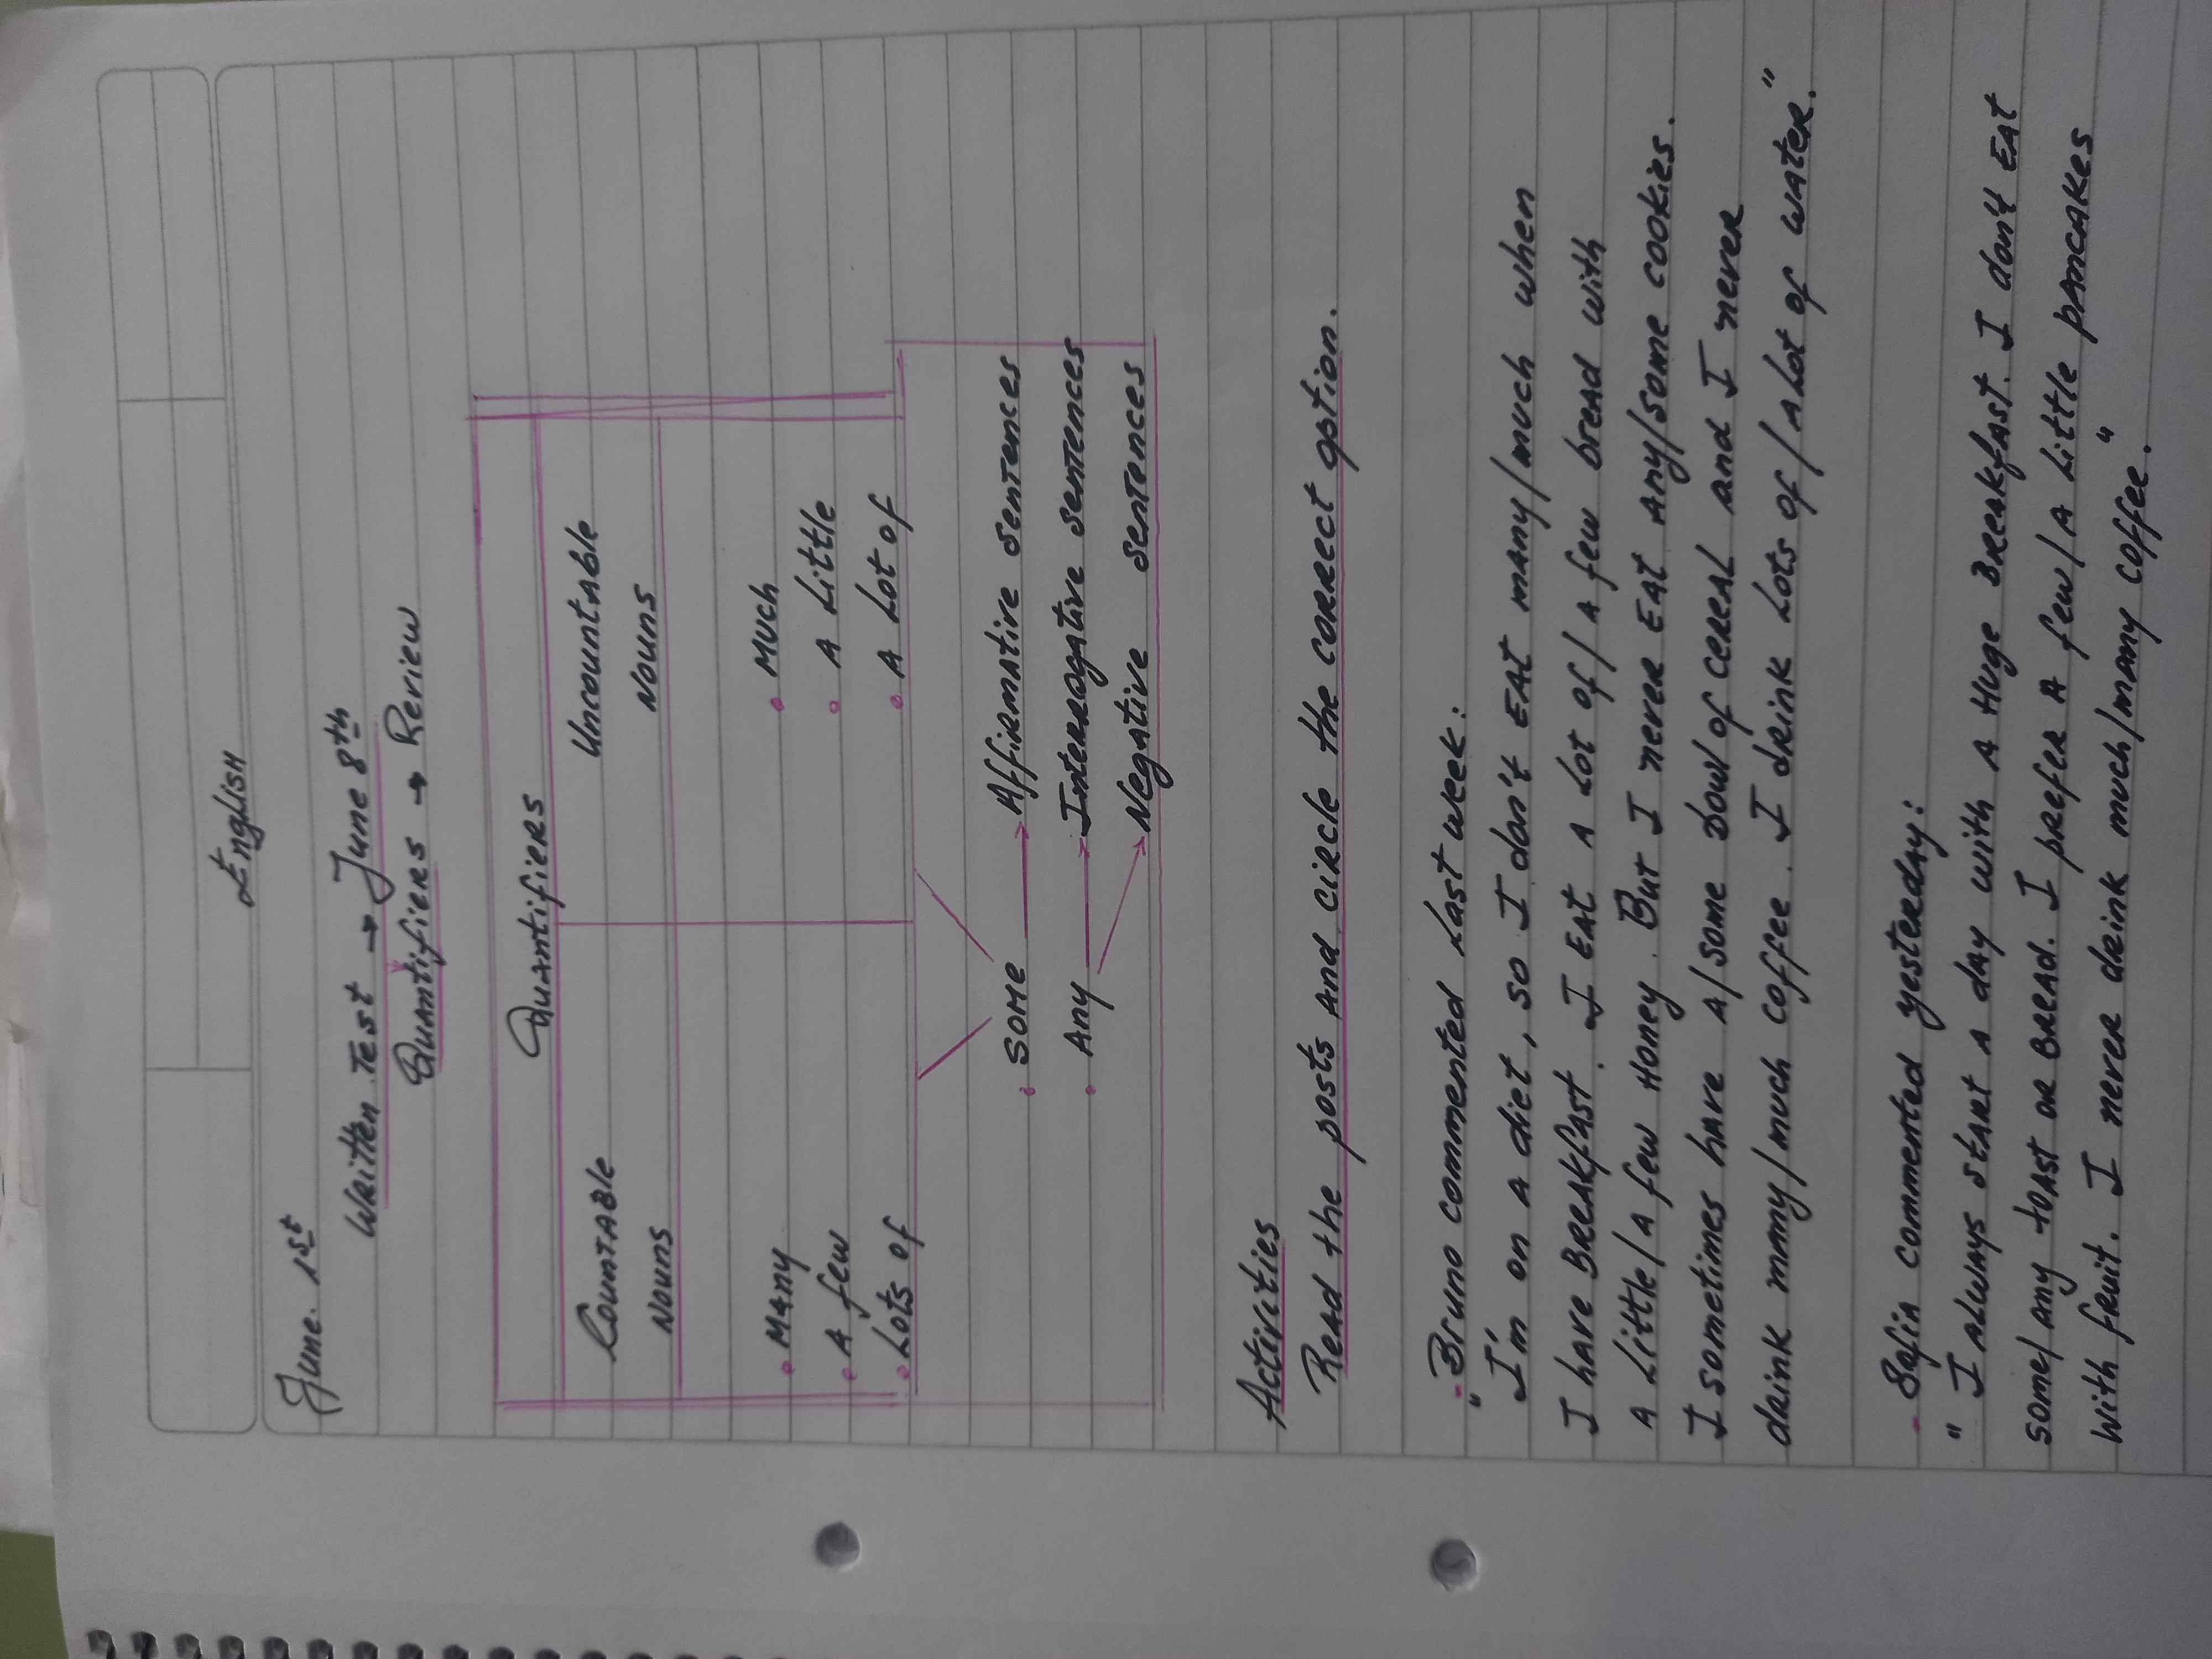 English
June. 1st
Written Test → June 8th
Quantifiers → Review
Quantifiers
Countable Nouns
Uncountable Nouns
• Many
• Much
• A few
• A little
• Lots of
• A lot of
• Some → Affirmative sentences
• Any → Interrogative sentences
→ Negative sentences
Activities
Read the posts and circle the correct option.
- Bruno commented last week:
" I'm on a diet, so I don't eat many/much when
I have breakfast. I eat a lot of/a few bread with
a little/a few honey. But I never eat any/some cookies.
I sometimes have a/some bowl of cereal and I never
drink many/much coffee. I drink lots of/a lot of water."
- Sofia commented yesterday:
" I always start a day with a huge breakfast. I don't eat
some/any toast or bread. I prefer a few/a little pancakes
with fruit. I never drink much/many coffee."